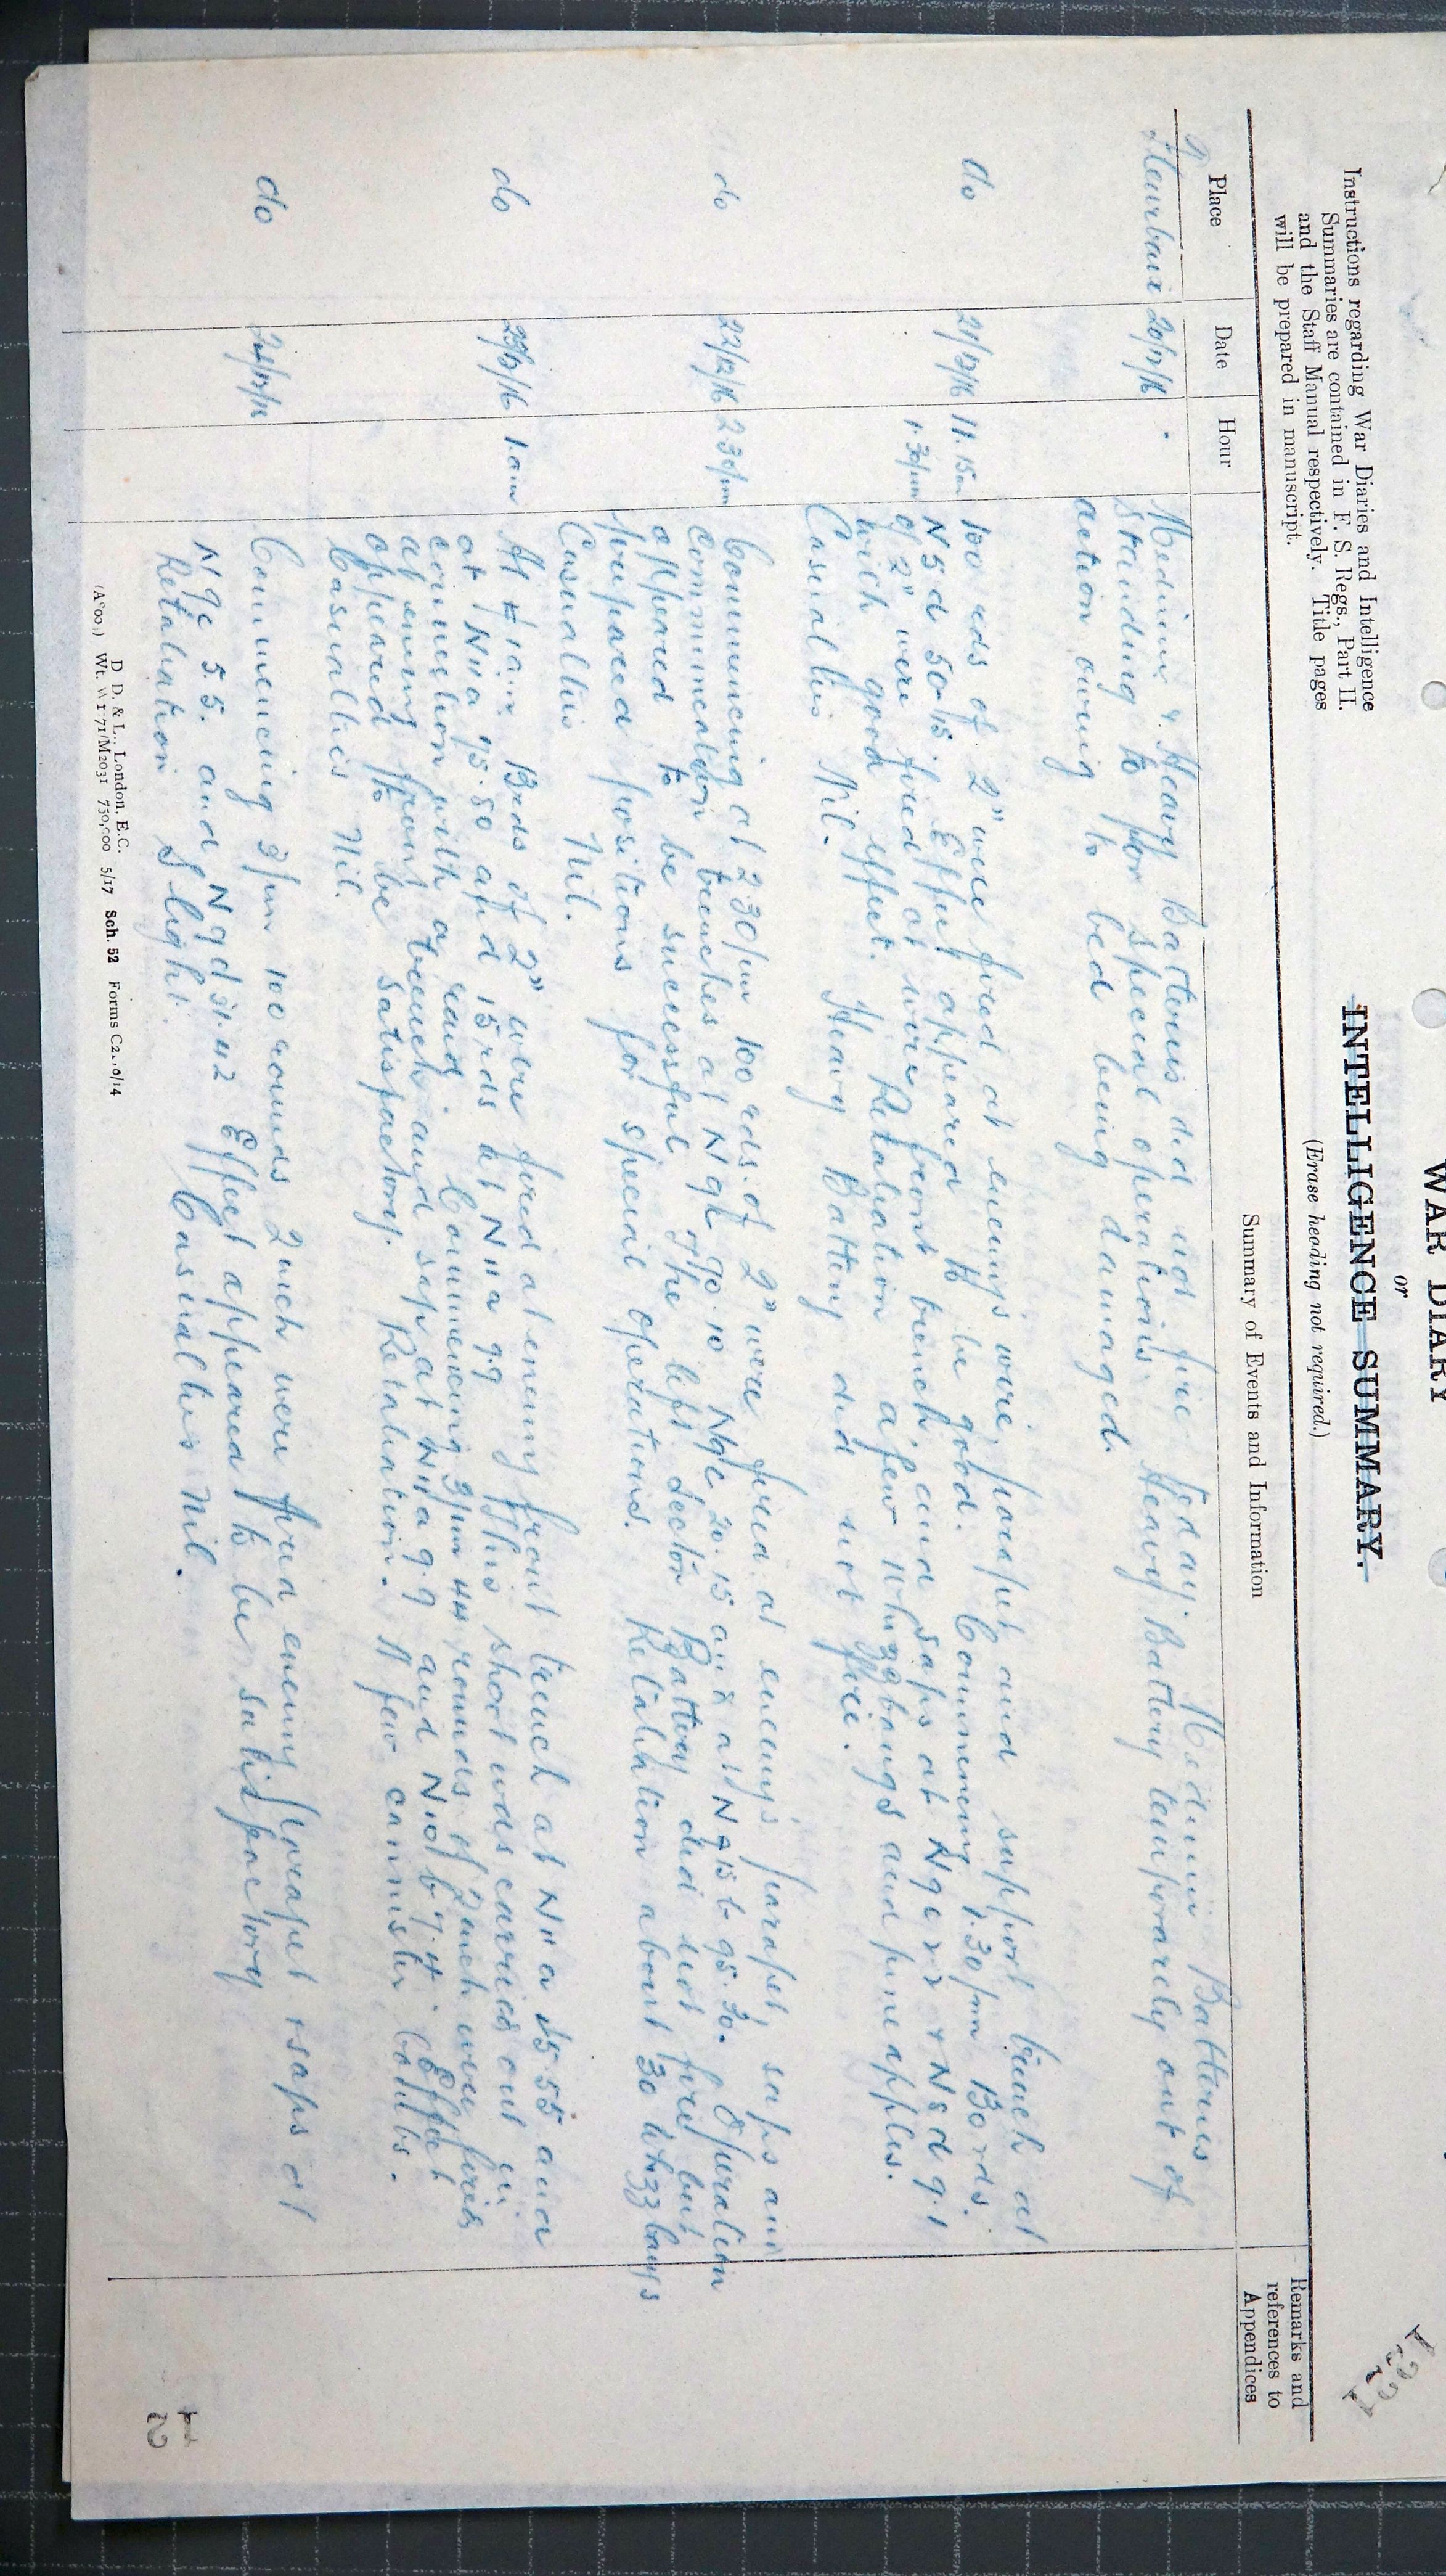 WAR DIARY
or
INTELLIGENCE SUMMARY.
(Erase heading not required.)
Instructions regarding War Diaries and Intelligence
Summaries are contained in F. S. Regs., Part II.
and the Staff Manual respectively. Title pages
will be prepared in manuscript.
Place Date Hour Summary of Events and Information Remarks and
references to
Appendices
Fleurbaix 20/12/16 Medium & Heavy Batteries did not fire today. Medium Batteries
standing to for special operations. Heavy Battery temporarily out of
action owing to bed being damaged.
do 21/12/16 11.15am 100 rds of 2" were fired at enemys wire, parapet and support trench at
N 5 d 50.15 Effect appeared to be good. Commencing 1.30pm 130 rds.
1.30pm of 2" were fired at wire front trench and saps at N 9 c 2 2 & N 8 d 9.1
with good effect. Retaliation a few whizzbangs and pineapples.
Casualties Nil. Heavy Battery did not fire.
do 22/12/16 2 30pm Commencing at 2.30pm 100 rds. of 2" were fired at enemy's parapet, saps and
communication trenches at N 9c 90.10 N9c 20.15 and at N 15 b 95.30. Operation
appeared to be successful The left sector Battery did not fire but
prepared positions for special operations. Retaliation about 30 whizzbangs
Casualties Nil.
do 23/12/16 1.am At 1am. 13rds of 2" were fired at enemy front trench at N 11 a 45 55 and
at N 11 a 75.80 and 15 rds at N 11 a 9.9 This short was carried out in
connection with a raid. Commencing 3pm 44 rounds of 2 inch were fired
at enemy front trench and sap at N 11 a 9.9 and N 10 b 7.4. Effect
appeared to be satisfactory. Retaliation. A few cannister bombs.
Casualties Nil.
do 24/12/16 Commencing 3pm 100 rounds 2 inch were fired enemy parapet & saps at
N 9c 5.5. and N 9d 31.42 Effect appeared to be satisfactory
Retaliation Slight. Casualties Nil.
D. D. & L., London, E.C.
Wt. W1771/M2031 750,000 5/17 Sch. 52 Forms C2../14